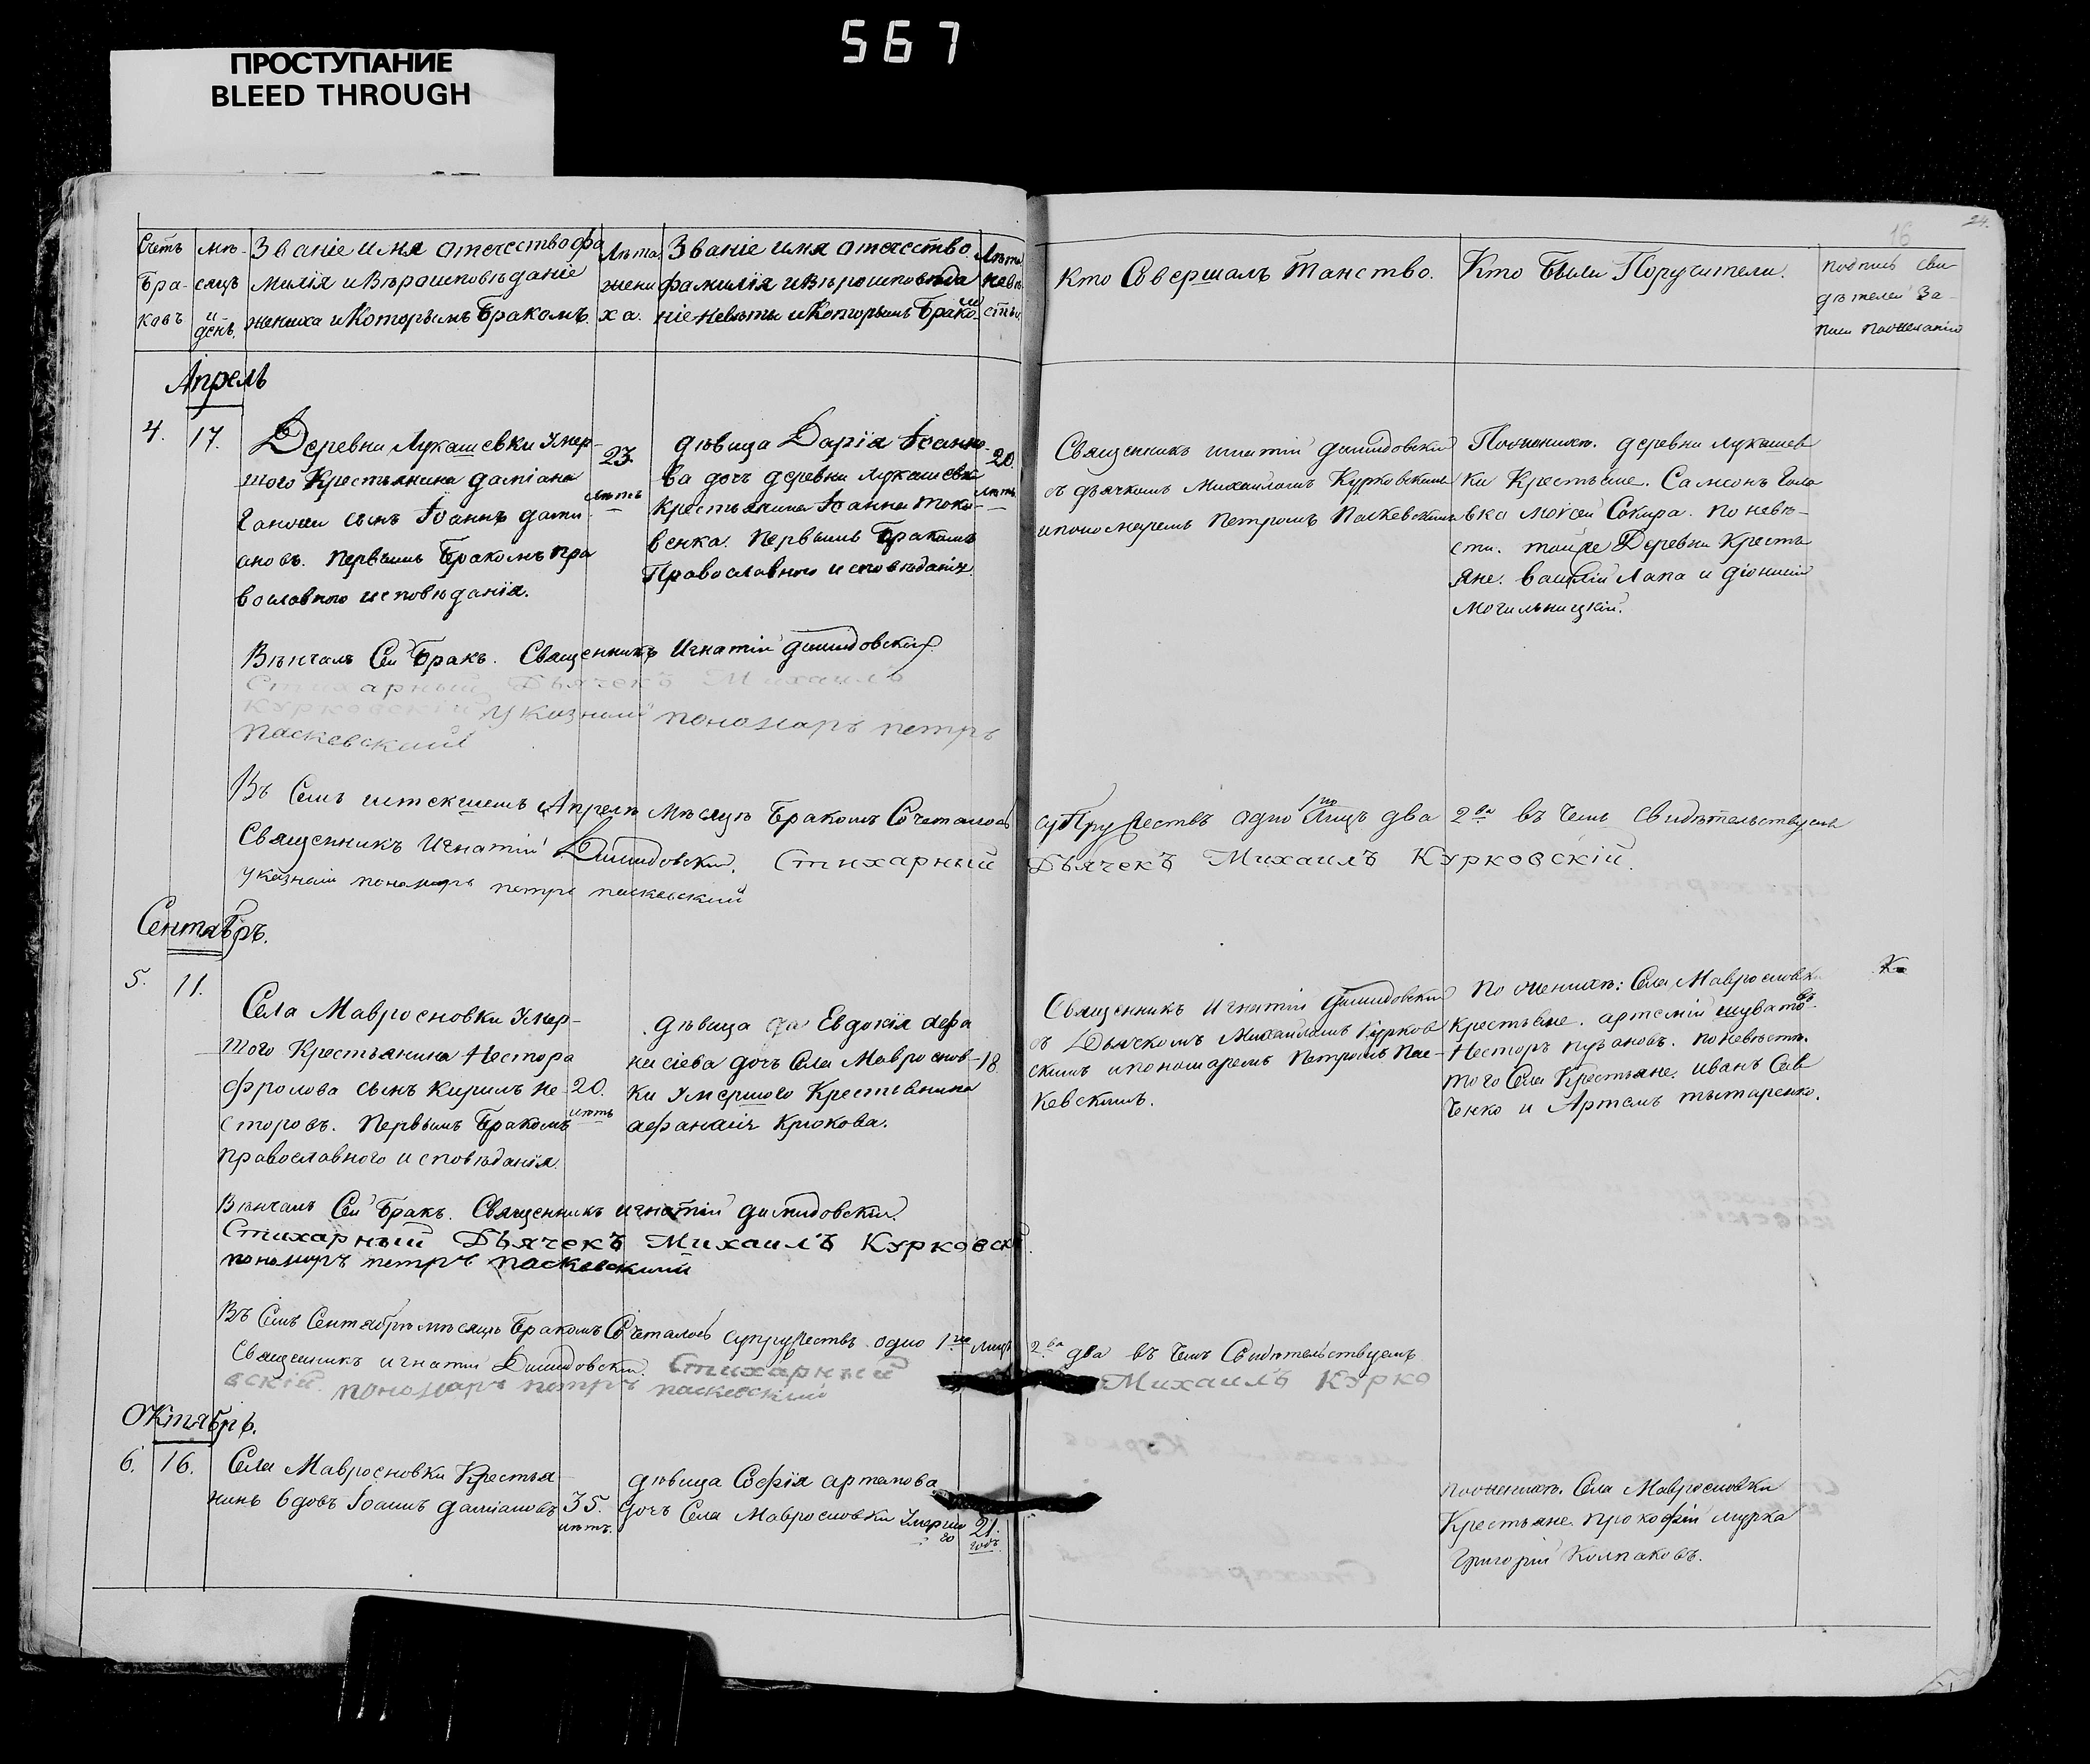 567
ПРОСТУПАНИЕ
BLEED THROUGH
24.
16
Счетъ
Бра-
ковъ
мѣ-
сяцъ
и
день.
Званіе имя отчество фа
милія и Вѣроисповѣданіе
жениха и Которымъ Бракомъ.
Лѣта
жени
ха.
Званіе имя отчество
фамилія и Вѣроисповѣда
ніе невѣсты и Которымъ Брако
Лѣта
невѣ
сты.
Кто Совершалъ Таинство.
Кто Были Поручители.
подпись сви-
дѣтелей За-
писи по желанію
Апрель
4.
17.
Деревни Лукашевки Умер-
шого Крестьянина даміана
сынъ Іоаннъ дами
ановъ. Первымъ Бракомъ пра
вославного исповѣданія.
23
лѣтъ
дѣвица Дарія Іоанно
ва дочь деревни лукашевки
Крестьянина Іоанна Токо
венка. Первымъ Бракомъ
Православного исповѣданія.
20.
лѣтъ
Священникъ игнатій димидовскій
съ дьячкомъ Михаиломъ Курковскимъ
и пономаремъ Петромъ Паскевскимъ
По женихѣ. деревни лукашев
ки Крестьяне. Самсонъ Голо
вко Моѵсей Сокира. По невѣ-
сти. тойже Деревни Кресть
яне. василій Лапа и діонисій
Могильницкій.
Вѣнчалъ Сей Бракъ. Священникъ Игнатій димидовскій
Стихарный Дьячекъ Михаилъ
Курковскій Указный пономарь петръ
паскевский
Въ Семъ истекшемъ Апрелѣ Мѣсяцѣ Бракомъ Сочеталось супружествъ одно 1но Лицъ два 2ва въ Чемъ Свидѣтельствуемъ
Священникъ Игнатій Димидовскій. Стихарный Дьячекъ Михаилъ Курковскій.
указный пономарь петръ паскевский
Сентябръ.
5.
11.
Села Мавросновки Умер-
шого Крестьянина Нестора
фролова сынъ Кирилъ не-
сторовъ. Первымъ Бракомъ
православного исповѣданія.
20.
лѣтъ
дѣвица Евдокія афа
насіева дочь Села Мавроснов-
ки Умершого Крестьянина
афанасія Крюкова.
18
Священникъ Игнатій димидовскій
съ Дьячкомъ Михаиломъ Курков
скимъ и пономаремъ Петромъ Пас-
Кевскимъ.
По женихѣ: Села Мавросновки
Крестьяне. артемій шувато
въ.
Несторъ пузановъ. по невѣстѣ.
того Села Крестьяне. иванъ Сав
ченко и Артемъ тытаренко.
Вѣнчалъ Сей Бракъ. Священникъ игнатій димидовскій.
Стихарный Дьячекъ Михаилъ Курковскі
пономарь петръ паскевский
Въ Семъ Сентябрѣ мѣсяцѣ Бракомъ Сочеталось супружествъ одно 1но лицъ 2ва два въ Чемъ Свидѣтельствуемъ
Священникъ игнатій Димидовскій. Стихарный Михаилъ Курко
вскій. пономарь петръ паскевский
Октябрь.
6.
16.
Села Мавросновки Крестья
нинъ вдовъ Іоаннъ даміановъ
35.
лѣтъ.
дѣвица Софія артамова
дочь Села Мавросновки Умершо
го
21.
годъ
По женихѣ. Села Мавросновки
Крестьяне прокофій мурка
Григорій Колпаковъ.